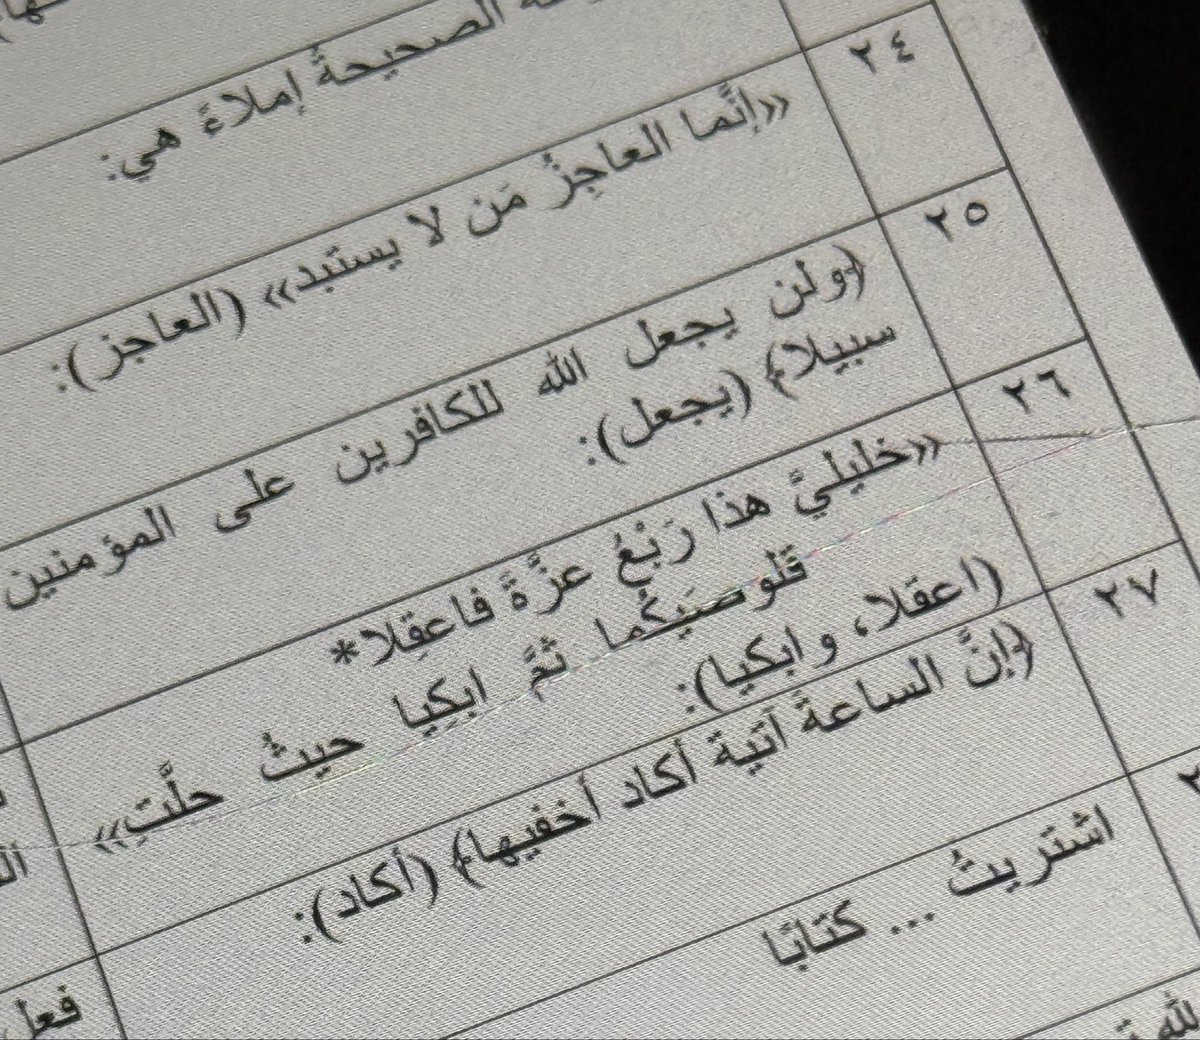 الصحيحةُ إملاءً هي:
٢٤
«إنَّما العاجِزُ مَن لا يستبد» (العاجز):
٢٥
﴿ولن يجعل الله للكافرين على المؤمنين
سبيلا﴾ (يجعل):
٢٦
«خليليَّ هذا رَبْعُ عزَّةَ فاعقِلا*
قَلوصَيكُما ثمَّ ابكِيا حيثُ حلَّتِ»
(اعقلا، وابكيا):
٢٧
﴿إنَّ الساعةَ آتية أكاد أخفيها﴾ (أكاد):
اشتريتُ ... كتابًا
فعل